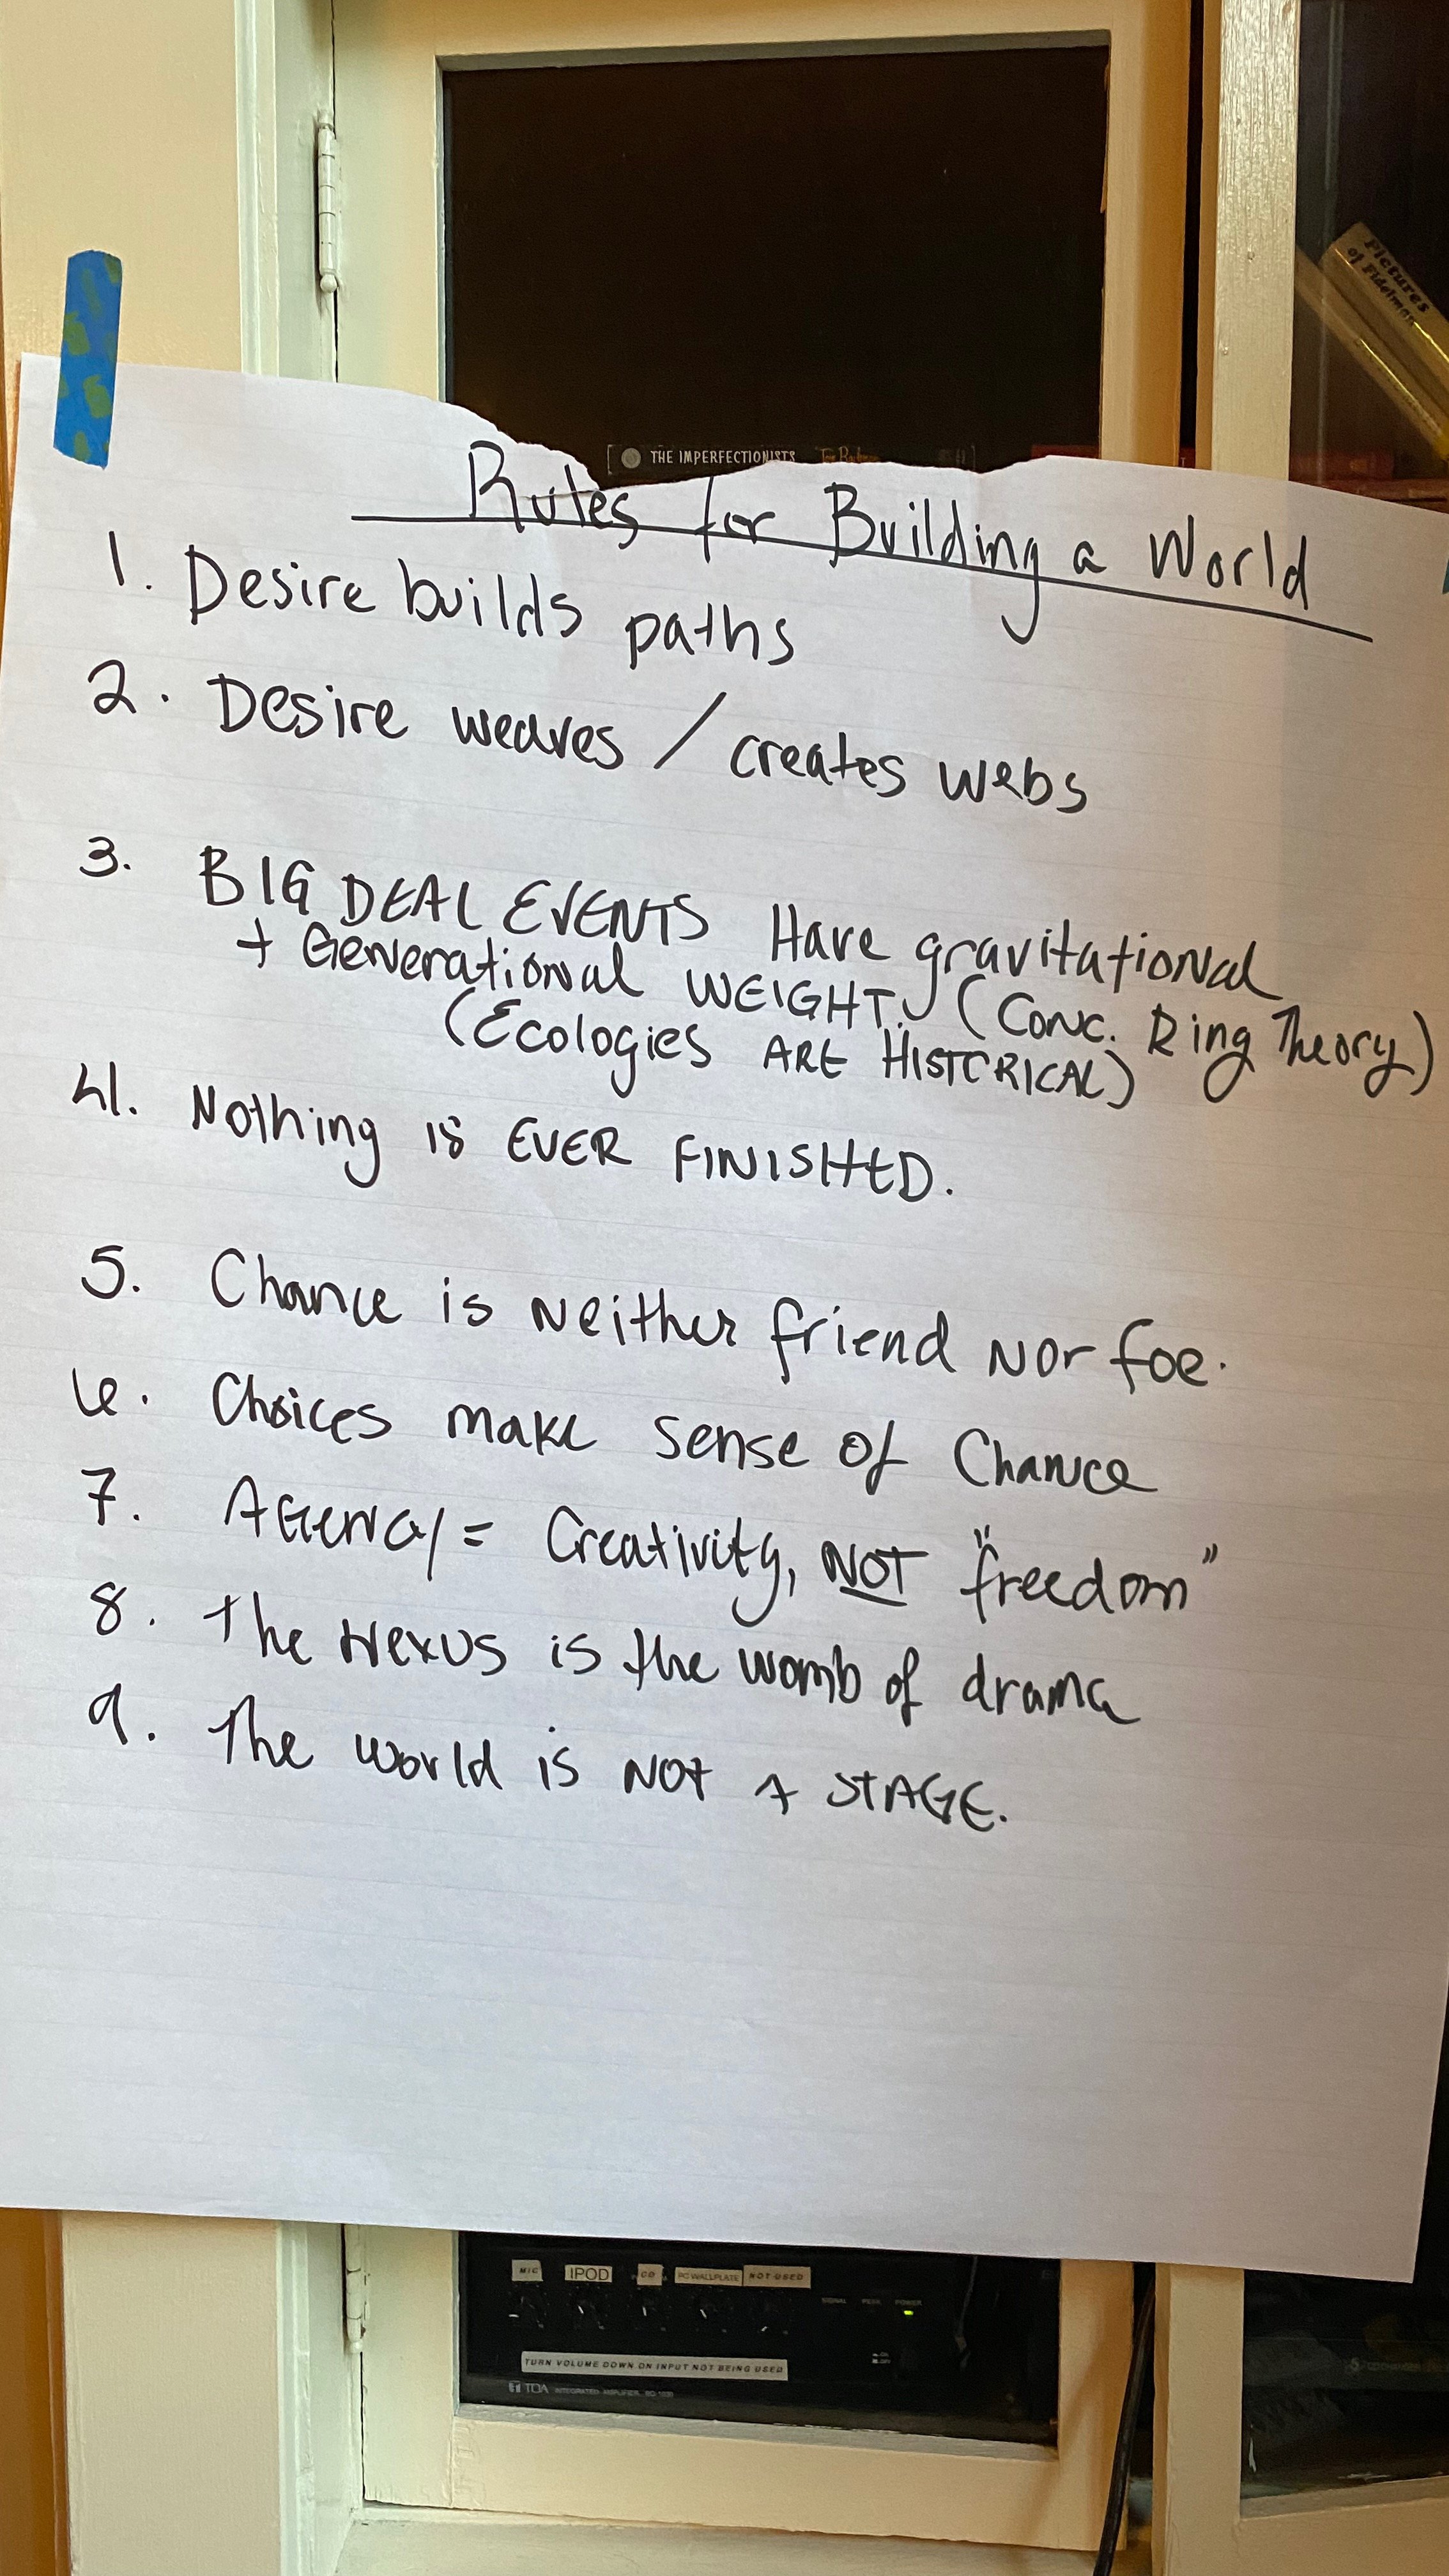 Pictures
of Fidelman
THE IMPERFECTIONISTS
Rules for Building a World
1. Desire builds paths
2. Desire weaves / creates webs
3. BIG DEAL EVENTS Have gravitational
+ Generational WEIGHT. (Conc. Ring Theory)
(Ecologies ARE HISTORICAL)
4. Nothing is EVER FINISHED.
5. Chance is Neither friend Nor foe.
6. Choices make sense of Chance
7. AGENCY = Creativity, NOT "freedom"
8. The Nexus is the womb of drama
9. The world is NOT A STAGE.
MIC IPOD CD PC WALLPLATE NOT USED
SIGNAL PEAK POWER
TURN VOLUME DOWN ON INPUT NOT BEING USED
TOA INTEGRATED AMPLIFIER